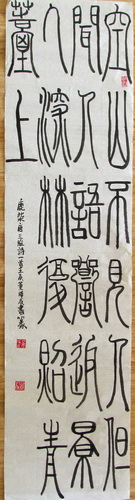 空山不見人但
聞人語響返景
入深林復照青
薹上
鹿柴 王維詩一首